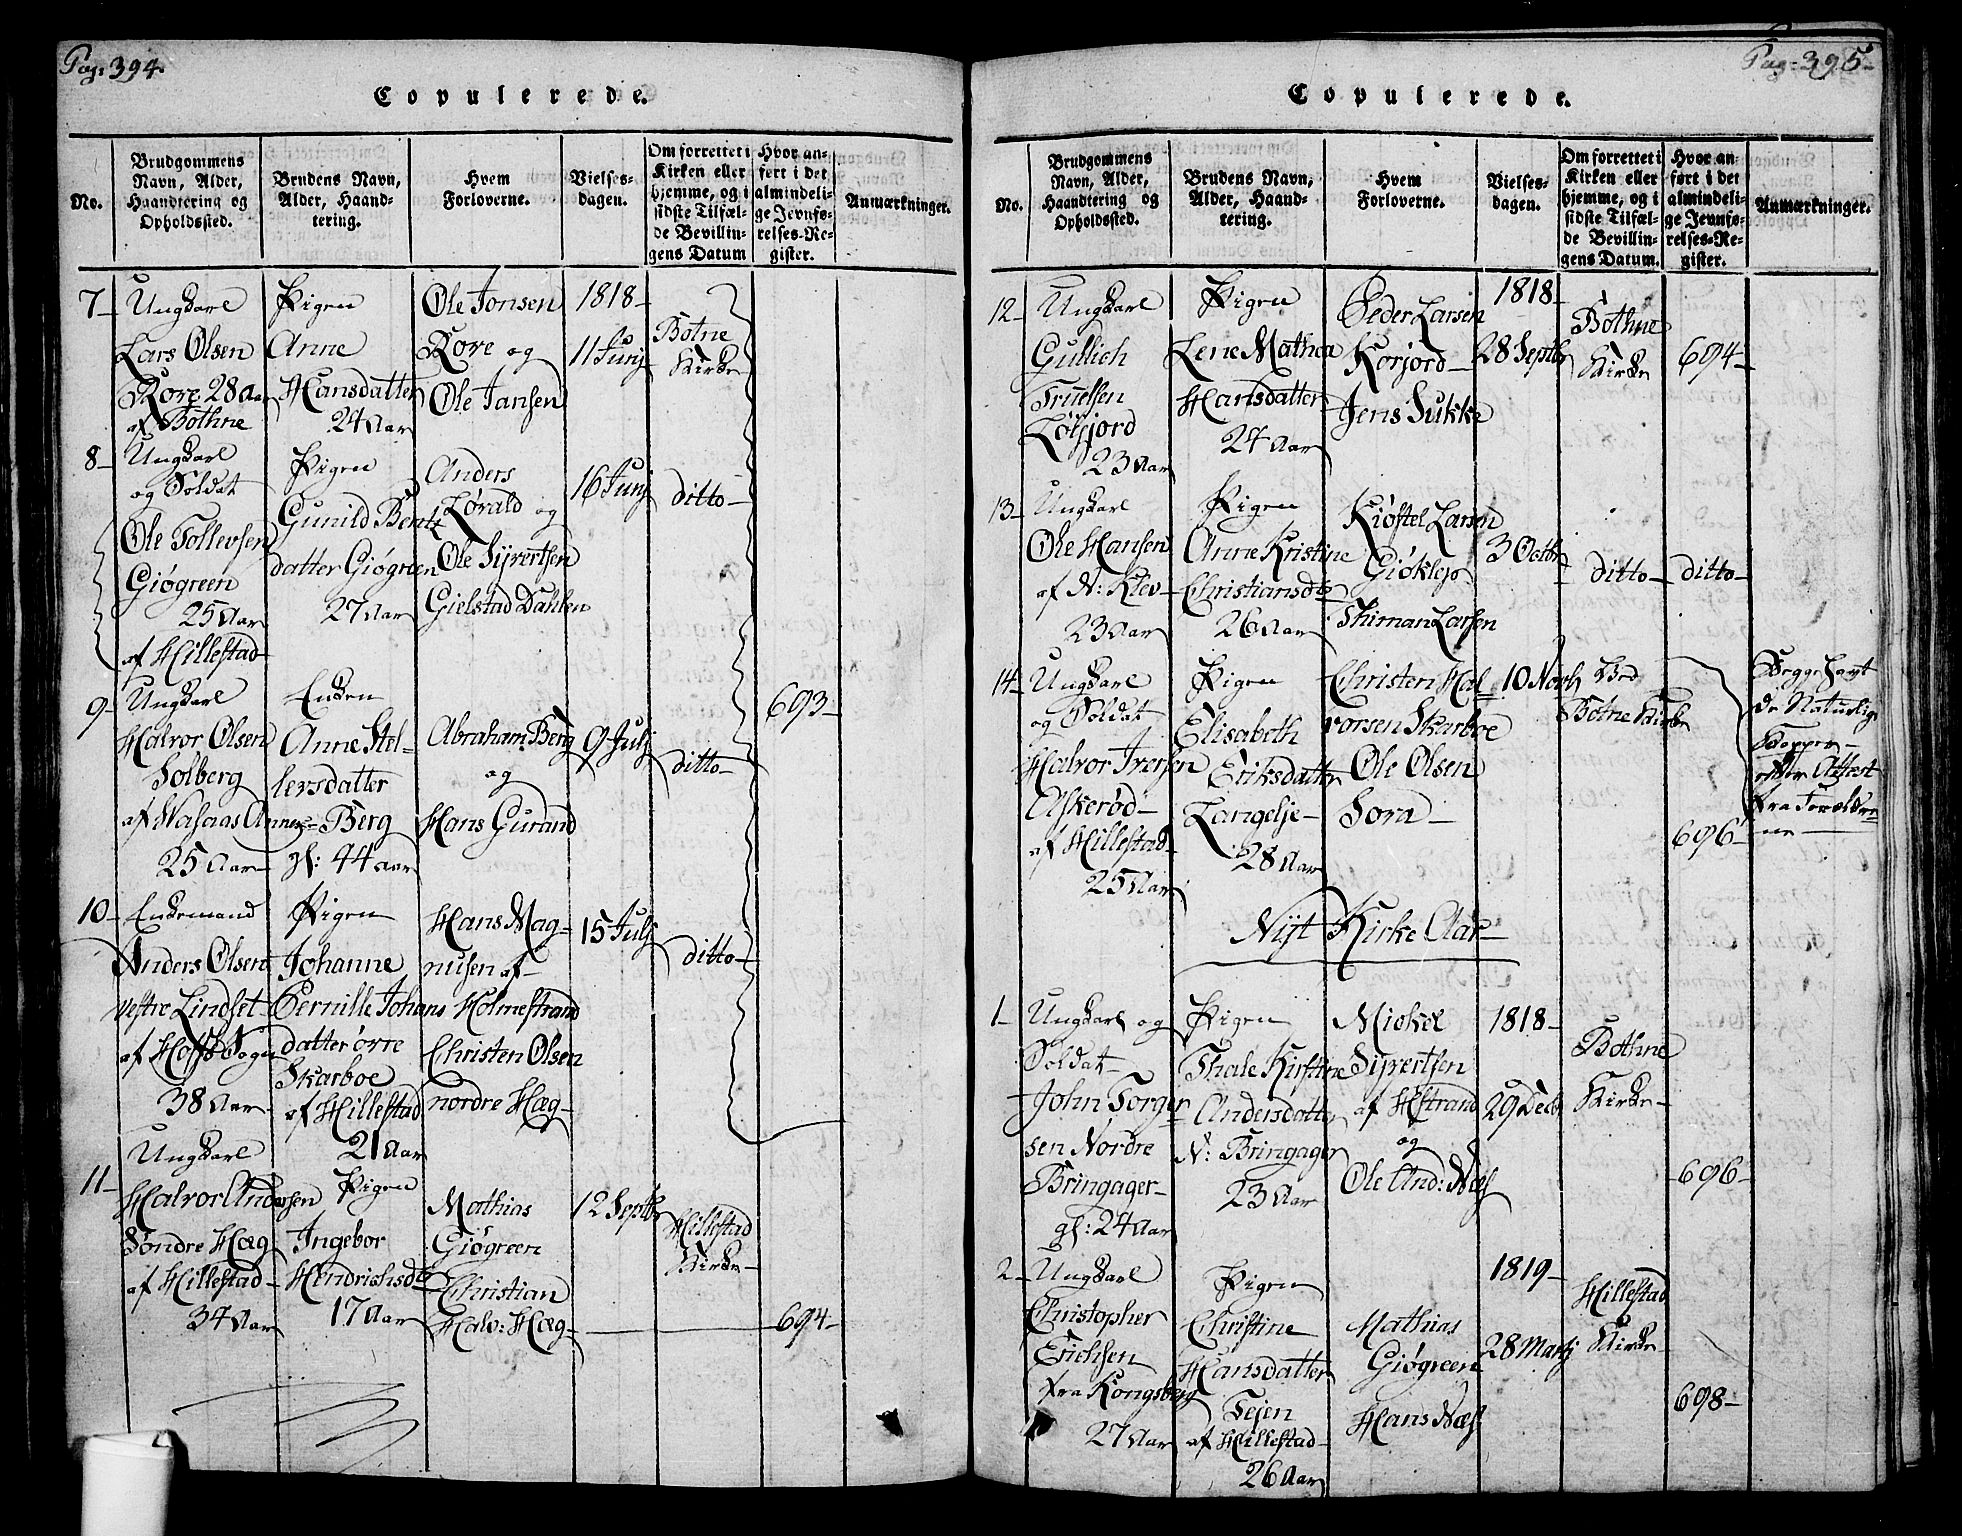 Pag: 394.
Copulerede.
No.
Brudgommens Navn, Alder, Haandtering og Opholdssted.
Brudens Navn, Alder, Haandtering.
Hvem Forloverne.
Vielsesdagen.
Om forrettet i Kirken eller hjemme, og i sidste Tilfælde Bevillingens Datum
Hvor anført i det almindelige Jevnførelses-Register.
Anmærkninger.
7-
Ungkarl
Lars Olsen
Rore 28 Aar
af Bothne
Pigen
Anne
Hansdatter
24 Aar
Ole Jonsen
Rore og
Ole Jansen
1818-
11 Junj
Botne
Kirke
8-
Ungkarl
og Soldat
Ole Tollevsen
Giøgreen
25 Aar
af Hillestad
Pigen
Gunild Bentz
datter Giøgreen
27 Aar
Anders
Lørald og
Ole Syvertsen
Gielstad Dahlen
16 Junj
ditto-
9-
Ungkarl
Halvor Olsen
Solberg
af Vasaas Annex
25 Aar
Enken
Anne Stel-
lersdatter
Berg
gl: 44 aar
Abraham Berg
og
Hans Gurand
9 Julj
ditto-
693-
10-
Enkemand
Anders Olsen
vestre Lindset
af Hoffs Sogn
38 Aar
Pigen
Johanne
Pernille Johans
datter ørre
Skarboe
af Hillestad
21 Aar
Hans Mag-
nusen af
Holmestrand
Christen Olsen
nordre Hæg-
15 Julj
ditto-
11-
Ungkarl
Halvor Andersen
Søndre Hæg
af Hillestad-
34 Aar
Pigen
Ingebor
Hendrichsdtr
17 Aar
Mathias
Giøgreen
Christian
Halv: Hæg-
12 Septbr
Hillestad
Kirke-
694-
Pag: 395-
Copulerede.
No.
Brudgommens Navn, Alder, Haandtering og Opholdssted.
Brudens Navn, Alder, Haandtering.
Hvem Forloverne.
Vielsesdagen.
Om forrettet i Kirken eller hjemme, og i sidste Tilfælde Bevillingens Datum.
Hvor anført i det almindelige Jevnførelses-Register.
Anmærkninger.
12-
Ungkarl
Gullich
Truelsen
23 Aar
Pigen
Lene Mathea
Hansdatter
24 Aar
Peder Larsen
Korjord-
Jens Sukke
1818-
28 Septbr
Bothne
Kirke
694-
13-
Ungkarl
Ole Hansen
af N: Klev-
23 Aar
Pigen
Anne Kristine
Christiansdtr
26 Aar
Kiøstel Larsen
Giøklep
Thiman Larsen
3 Octbr
ditto-
ditto-
14-
Ungkarl
og Soldat
Halvor Iversen
Askerød-
af Hillestad-
25 Aar
Pigen
Elisabeth
Eriksdatter
Langelje-
28 Aar
Christen Hal-
vorsen Skarboe
Ole Olsen
Sora-
10 Novb
Ved
Botne Kirke
696-
Begge havt
de Naturlige
Kopper-
efter Attest
fra Forældre-
ne-
Nÿt Kirke Aar-
1-
Ungkarl og
Soldat-
John Torger
sen Nordre
Bringager-
gl: 24 Aar
Pigen
Thale Kirstine
Andersdatter
N: Bringager
23 Aar
Mickel
Syvertsen
af Hstrand
og
Ole And: Næs
1818-
29 Decb
Bothne
Kirke-
696-
2-
Ungkarl
Christopher
Erichsen
fra Kongsberg
27 Aar
Pigen
Christine
Hansdatter
Tejen
af Hillestad-
26 Aar
Mathias
Giøgreen
Hans Næs
1819-
28 Martj
Hillestad
Kirke-
698-